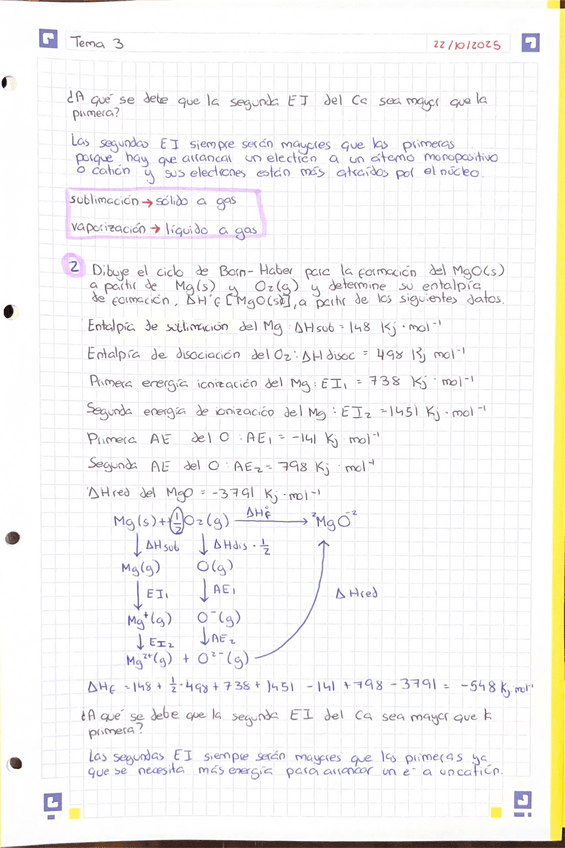 Tema 3
22/10/2025
¿A qué se debe que la segunda EI del Ca sea mayor que la
primera?
Las segundas EI siempre serán mayores que las primeras
porque hay que arrancar un electrón a un átomo monopositivo
o catión y sus electrones están más atraídos por el núcleo.
sublimación → sólido a gas
vaporización → líquido a gas
2 Dibuje el ciclo de Born-Haber para la formación del MgO(s)
a partir de Mg(s) y O₂(g) y determine su entalpía
de formación, ΔH°f [MgO(s)], a partir de los siguientes datos.
Entalpía de sublimación del Mg: ΔHsub = 148 Kj · mol⁻¹
Entalpía de disociación del O₂: ΔHdisoc = 498 Kj mol⁻¹
Primera energía ionización del Mg: EI₁ = 738 Kj · mol⁻¹
Segunda energía de ionización del Mg: EI₂ = 1451 Kj · mol⁻¹
Primera AE del O: AE₁ = -141 Kj mol⁻¹
Segunda AE del O: AE₂ = 798 Kj mol⁻¹
ΔHred del MgO = -3791 Kj · mol⁻¹
Mg(s) + ½ O₂(g) ΔH°f → ²MgO⁻²
↓ ΔHsub ↓ ΔHdis · ½
Mg(g) O(g)
↓ EI₁ ↓ AE₁ ΔHred
Mg⁺(g) O⁻(g)
↓ EI₂ ↓ AE₂
Mg²⁺(g) + O²⁻(g)
ΔHf = 148 + ½ · 498 + 738 + 1451 - 141 + 798 - 3791 = -548 Kj mol⁻¹
¿A qué se debe que la segunda EI del Ca sea mayor que la
primera?
Las segundas EI siempre serán mayores que las primeras ya
que se necesita más energía para arrancar un e⁻ a un catión.